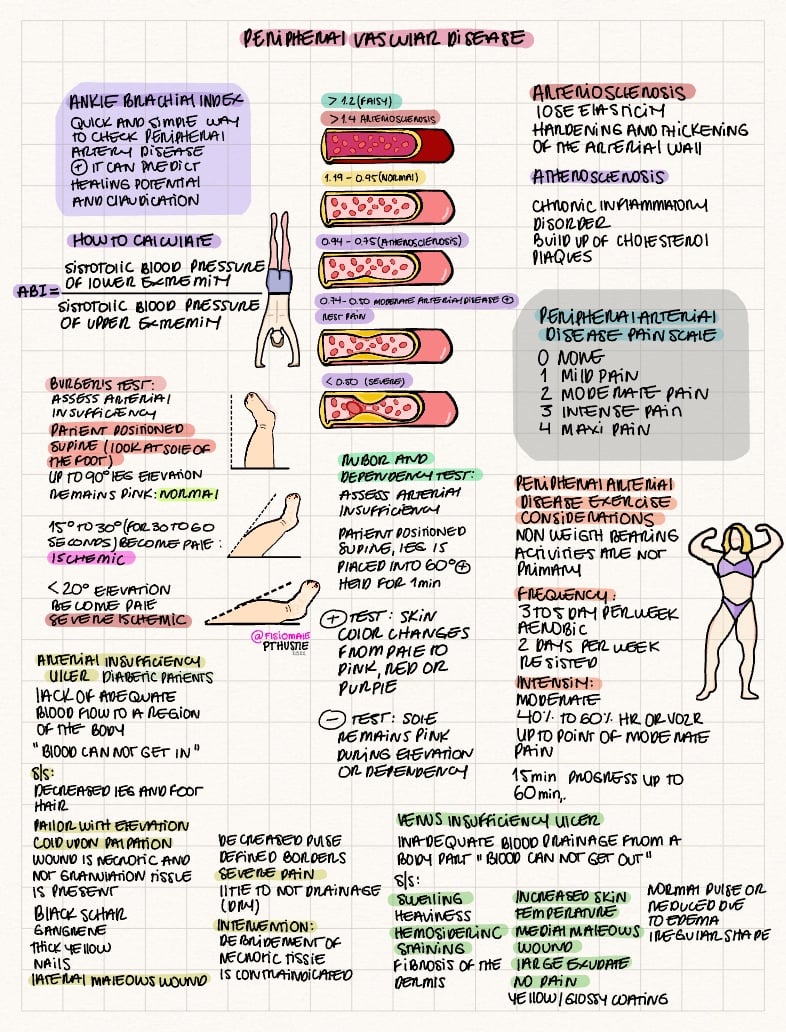 PERIPHERAL VASCULAR DISEASE
ANKLE BRACHIAL INDEX
QUICK AND SIMPLE WAY
TO CHECK PERIPHERAL
ARTERY DISEASE
+ IT CAN PREDICT
HEALING POTENTIAL
AND CLAUDICATION
HOW TO CALCULATE
ABI =
SISTOTOLIC BLOOD PRESSURE
OF LOWER EXTREMITY
SISTOTOLIC BLOOD PRESSURE
OF UPPER EXTREMITY
> 1.2 (FALSY)
> 1.4 ARTERIOSCLEROSIS
1.19 - 0.95 (NORMAL)
0.94 - 0.75 (ATHEROSCLEROSIS)
0.74 - 0.50 MODERATE ARTERIAL DISEASE +
REST PAIN
< 0.50 (SEVERE)
ARTERIOSCLEROSIS
LOSE ELASTICITY
HARDENING AND THICKENING
OF THE ARTERIAL WALL
ATHEROSCLEROSIS
CHRONIC INFLAMMATORY
DISORDER
BUILD UP OF CHOLESTEROL
PLAQUES
PERIPHERAL ARTERIAL
DISEASE PAIN SCALE
0 NONE
1 MILD PAIN
2 MODERATE PAIN
3 INTENSE PAIN
4 MAXI PAIN
BURGER'S TEST:
ASSESS ARTERIAL
INSUFFICIENCY
PATIENT POSITIONED
SUPINE (LOOK AT SOLE OF
THE FOOT)
UP TO 90° LEG ELEVATION
REMAINS PINK: NORMAL
15° TO 30° (FOR 30 TO 60
SECONDS) BECOME PALE:
ISCHEMIC
< 20° ELEVATION
BECOME PALE
SEVERE ISCHEMIC
@FISIOMALE
PTHUSTLE
RUBOR AND
DEPENDENCY TEST:
ASSESS ARTERIAL
INSUFFICIENCY
PATIENT POSITIONED
SUPINE, LEG IS
PLACED INTO 60° +
HELD FOR 1min
+ TEST: SKIN
COLOR CHANGES
FROM PALE TO
PINK, RED OR
PURPLE
- TEST: SOLE
REMAINS PINK
DURING ELEVATION
OR DEPENDENCY
PERIPHERAL ARTERIAL
DISEASE EXERCISE
CONSIDERATIONS
NON WEIGTH BEARING
ACTIVITIES ARE NOT
PRIMARY
FREQUENCY:
3 TO 5 DAY PER WEEK
AEROBIC
2 DAYS PER WEEK
RESISTED
INTENSITY:
MODERATE
40% TO 60% HR OR VO2R
UP TO POINT OF MODERATE
PAIN
15min PROGRESS UP TO
60min,.
ARTERIAL INSUFFICIENCY
ULCER DIABETIC PATIENTS
LACK OF ADEQUATE
BLOOD FLOW TO A REGION
OF THE BODY
"BLOOD CAN NOT GET IN"
S/S:
DECREASED LEG AND FOOT
HAIR
PALLOR WITH ELEVATION
COLD UPON PALPATION
WOUND IS NECROTIC AND
NOT GRANULATION TISSUE
IS PRESENT
BLACK SCHAR
GANGRENE
THICK YELLOW
NAILS
LATERAL MALEOLUS WOUND
DECREASED PULSE
DEFINED BORDERS
SEVERE PAIN
LITLE TO NOT DRAINAGE
(DRY)
INTERVENTION:
DEBRIDEMENT OF
NECROTIC TISSUE
IS CONTRAINDICATED
VENUS INSUFFICIENCY ULCER
INADEQUATE BLOOD DRAINAGE FROM A
BODY PART "BLOOD CAN NOT GET OUT"
S/S:
SWELLING
HEAVINESS
HEMOSIDERINC
STAINING
FIBROSIS OF THE
DERMIS
INCREASED SKIN
TEMPERATURE
MEDIAL MALEOLUS
WOUND
LARGE EXUDATE
NO PAIN
YELLOW/GLOSSY COATING
NORMAL PULSE OR
REDUCED DUE
TO EDEMA
IRREGULAR SHAPE